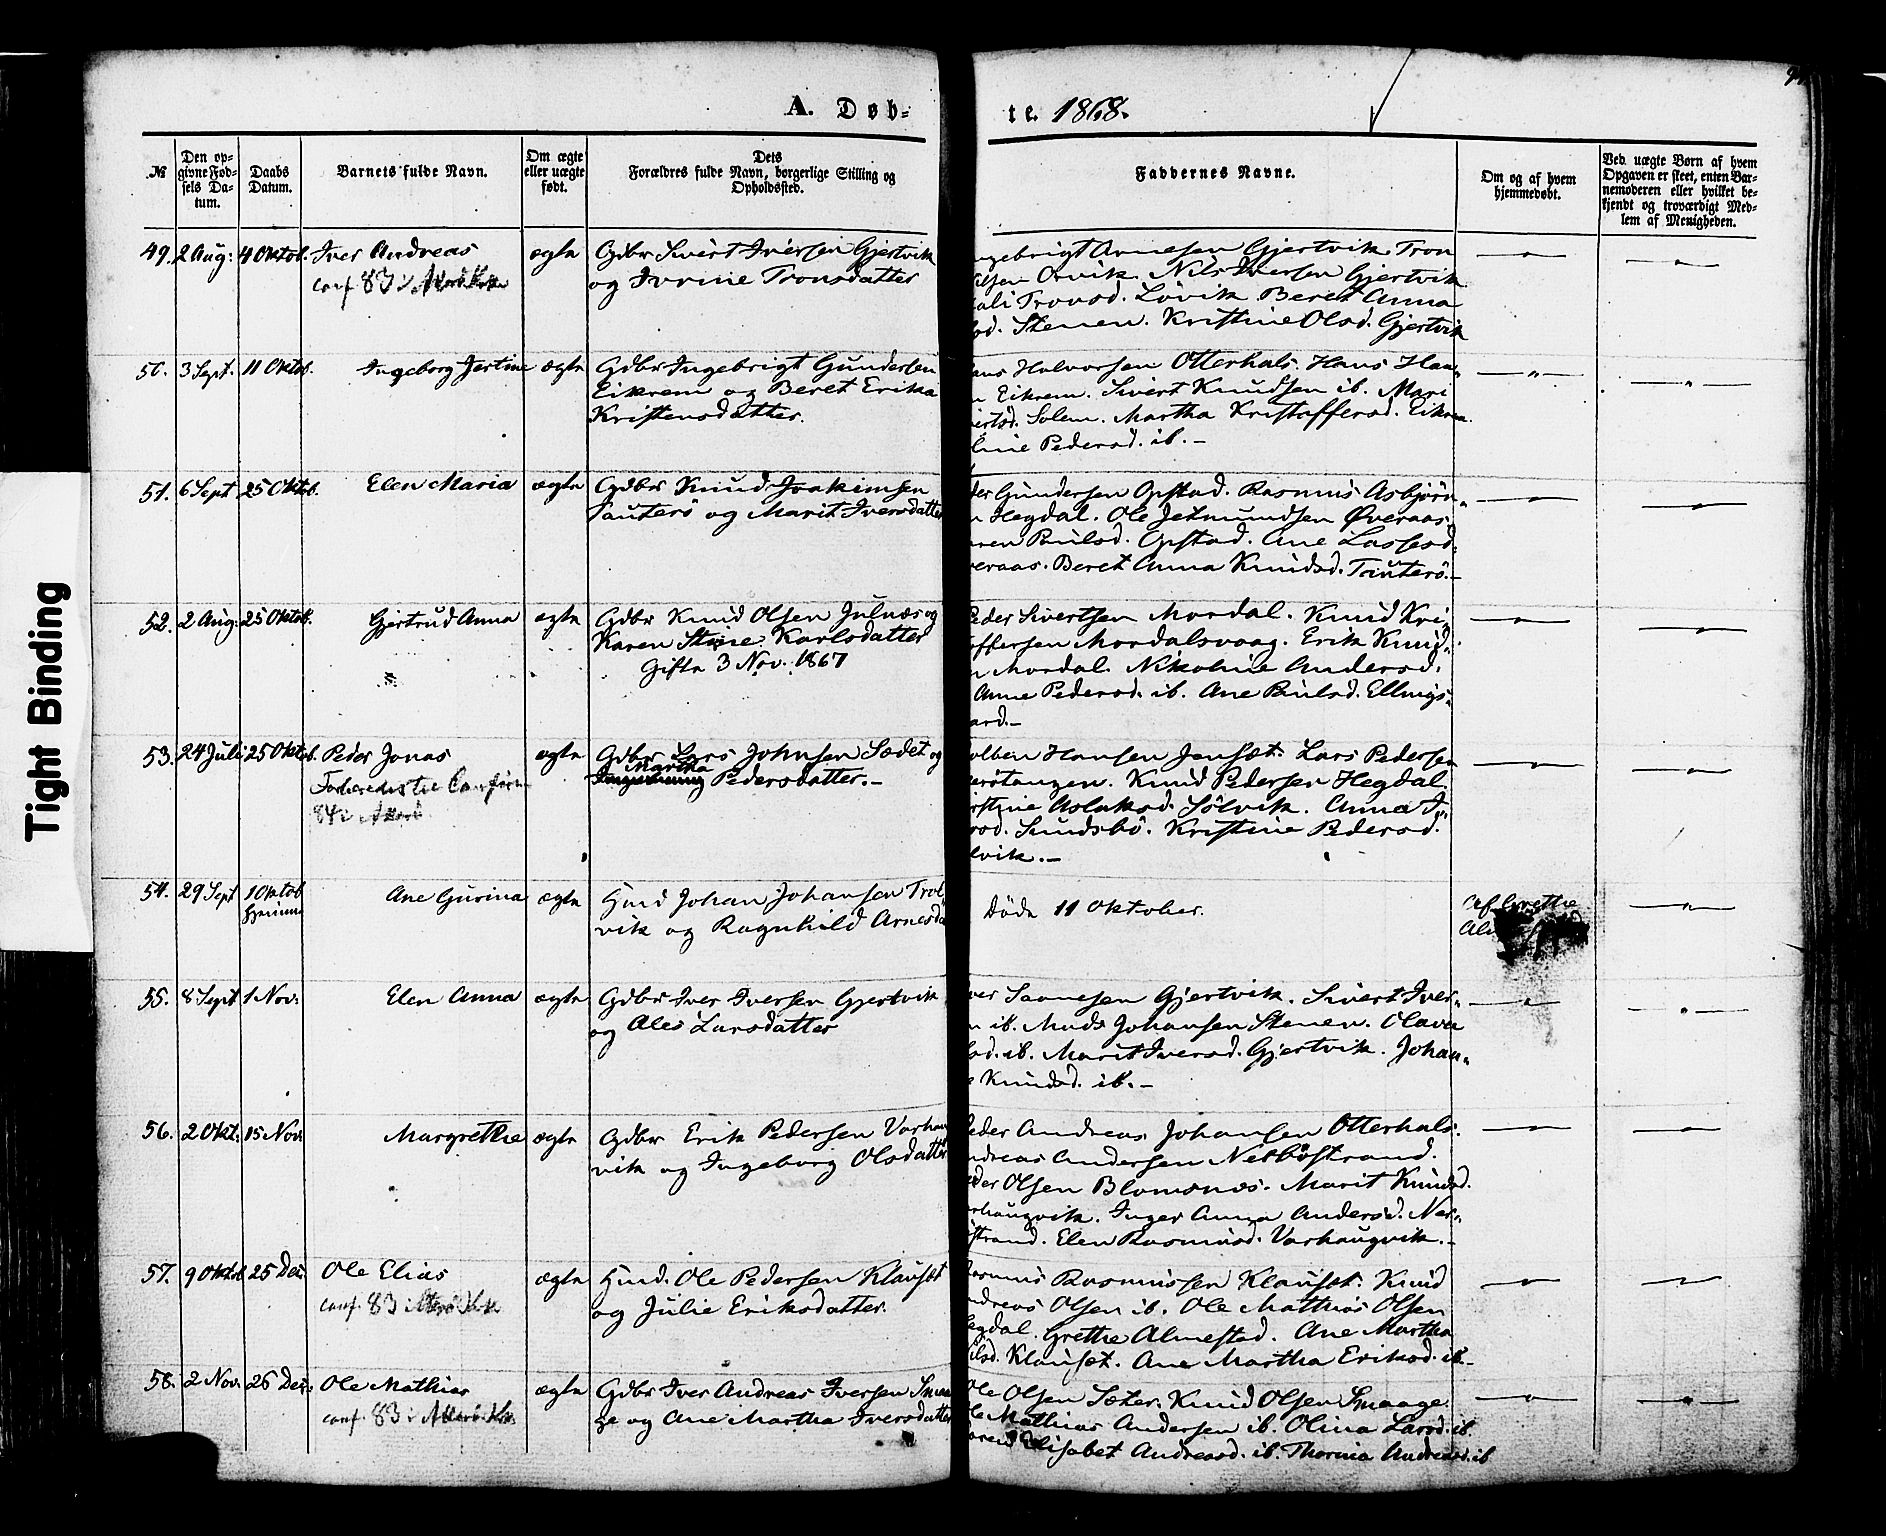 A. Døb-
te. 1868.
Tight Binding
№
Den op-
givne Fød-
sels Da-
tum.
Daabs
Datum.
Barnets fulde Navn.
Om ægte
eller uægte
født.
Dets
Forældres fulde Navn, borgerlige Stilling og
Opholdssted.
Faddernes Navne.
Om og af hvem
hjemmedøbt.
Ved uægte Børn af hvem
Opgaven er skeet, enten Bar-
nemoderen eller hvilket be-
kjendt og troværdigt Med-
lem af Menigheden.
49. 2 Aug: 4 Oktob. Iver Andreas ægte Gdbr Sivert Iversen Gjertvik
conf. 83 i og Tronsdatter
Ingebrigt Arnesen Gjertvik. Tron
Orvik. Nils Iversen Gjertvik
Tronsd. Løvik. Beret Anna
Stenen. Kristine Olsd. Gjertvik
50. 3 Sept. 11 Oktob. Ingeborg Jertine ægte Gdbr Ingebrigt Gundersen
Eikrem og Beret Erika
Kristensdatter.
Halvorsen Otterhals. Hans Han-
Eikrem. Sivert Knudsen ib. Mari
Solem. Martha Kristoffersd. Eikrem
Pedersd. ib. —
51. 6 Sept 25 Oktob. Elen Maria ægte Gdbr Knud Joakimsen
Tautersø og Marit Iversdatter
Gundersen Opstad. Rasmus Asbjørn-
Hegdal. Ole Jetmundsen Øveraas
Paulsd. Opstad. Ane Lassesd.
Beret Anna Knudsd. Tautersø. —
52. 2 Aug: 25 Oktob. Gjertrud Anna ægte Gdbr Knud Olsen Julnæs og
Karen Stine Karlsdatter
Gifte 3 Nov. 1867
Peder Sivertsen Mordal. Knud Kri-
Mordalsvaag. Erik Knud-
Mordal. Nikoline Andersd.
Anne Pedersd. ib. Ane Paulsd. Ellings-
gaard. —
53. 24 Juli 25 Oktob. Peder Jonas ægte Gdbr Lars Johnsen Sædet og
84 i Akerø Martha
Pedersdatter. —
Hansen Jensæt. Lars Pedersen
Knud Pedersen Hegdal.
Aslaksd. Sølvik. Anna I-
Sundsbø. Kristine Pedersd.
54. 29 Sept 1 Oktob ægte Hmd Johan Johansen Trol-
hjemme Ane Gurina
vik og Ragnhild Arnesda
Døde 11 Oktober.
Af Grethe
55. 8 Sept 1 Nov: Elen Anna ægte Gdbr Iver Iversen Gjertvik
og Ales Larsdatter
Gjertvik. Sivert Iver-
ib. Mads Johansen Stenen. Olava
ib. Marit Iversd. Gjertvik. Johan-
Knudsd. ib. —
56. 2 Okt: 15 Nov. Margrethe ægte Gdbr Erik Pedersen Varhau
vik og Ingeborg Olsdatter
Peder Andreas Johansen Otterhals.
Andreas Andersen Nerbøstrand.
Peder Olsen Blomsnæs. Marit Knudsd.
Varhaugvik. Inger Anna Andersd. Ner-
Elen Rasmusd. Varhaugvik. —
57. 9 Oktob 25 Des. Ole Elias ægte Hmd. Ole Pedersen Klauset
conf. 83 i og Julie Eriksdatter
Rasmus Rasmussen Klauset. Knud
Andreas Olsen ib. Ole Mathias Olsen
Hegdal. Grethe Almestad. Ane Martha
Klauset. Ane Martha Eriksd. ib. —
58. 2 Nov. 26 Des. Ole Mathias ægte Gdbr Iver Andreas Iversen Smaa
conf. 83 i ge og Ane Martha Iversdatter
Ole Olsen Sæter. Knud Olsen Smaage.
Ole Mathias Andersen ib. Olina Larsd. ib.
Elisabet Andreasd. ib. Thorina Andreasd. ib